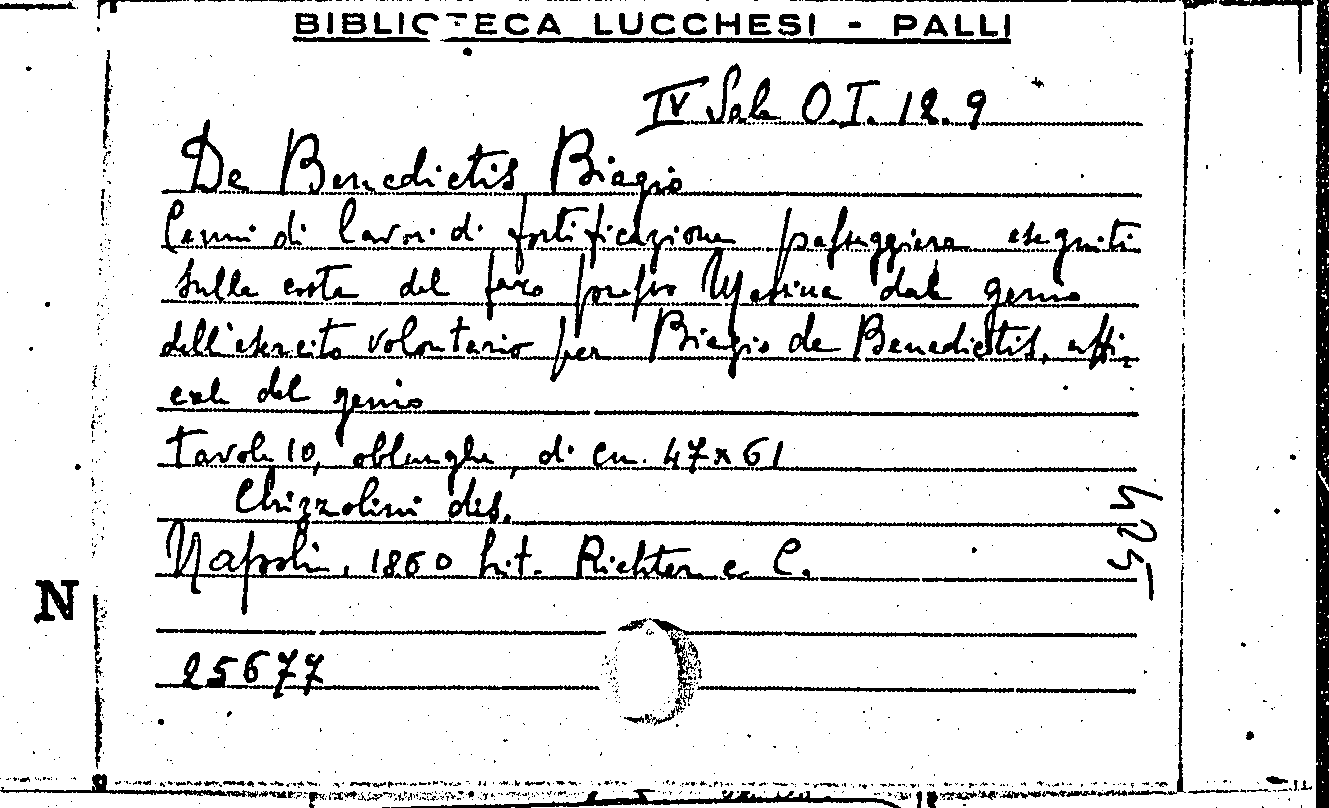 BIBLIOTECA LUCCHESI - PALLI
IV Sala O.I. 12.9
De Benedictis Biagio
Cenni di lavori di fortificazione passeggiera eseguiti
sulla costa del faro presso Messina dal genio
dell'esercito volontario per Biagio de Benedictis, uffi-
ciale del genio
tavole 10, oblunghe, di cm. 47x61
Chizzolini dis.
Napoli, 1860 Lit. Richter e C.
N
25677